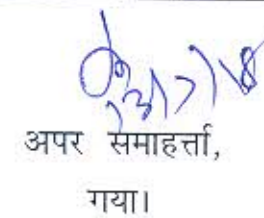 अपर समाहर्त्ता,
गया।